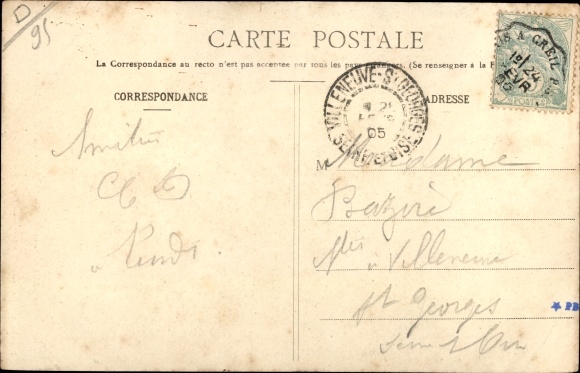 D
95
CARTE POSTALE
La Correspondance au recto n'est pas acceptée par tous les pays étrangers. (Se renseigner à la P
CORRESPONDANCE
ADRESSE
VILLENEUVE-ST GEORGES
SEINE-ET-OISE
21
05
A CREIL
24
Amitiés
M Madame
Bazire
à Villeneuve
St Georges
Seine et Oise
PB